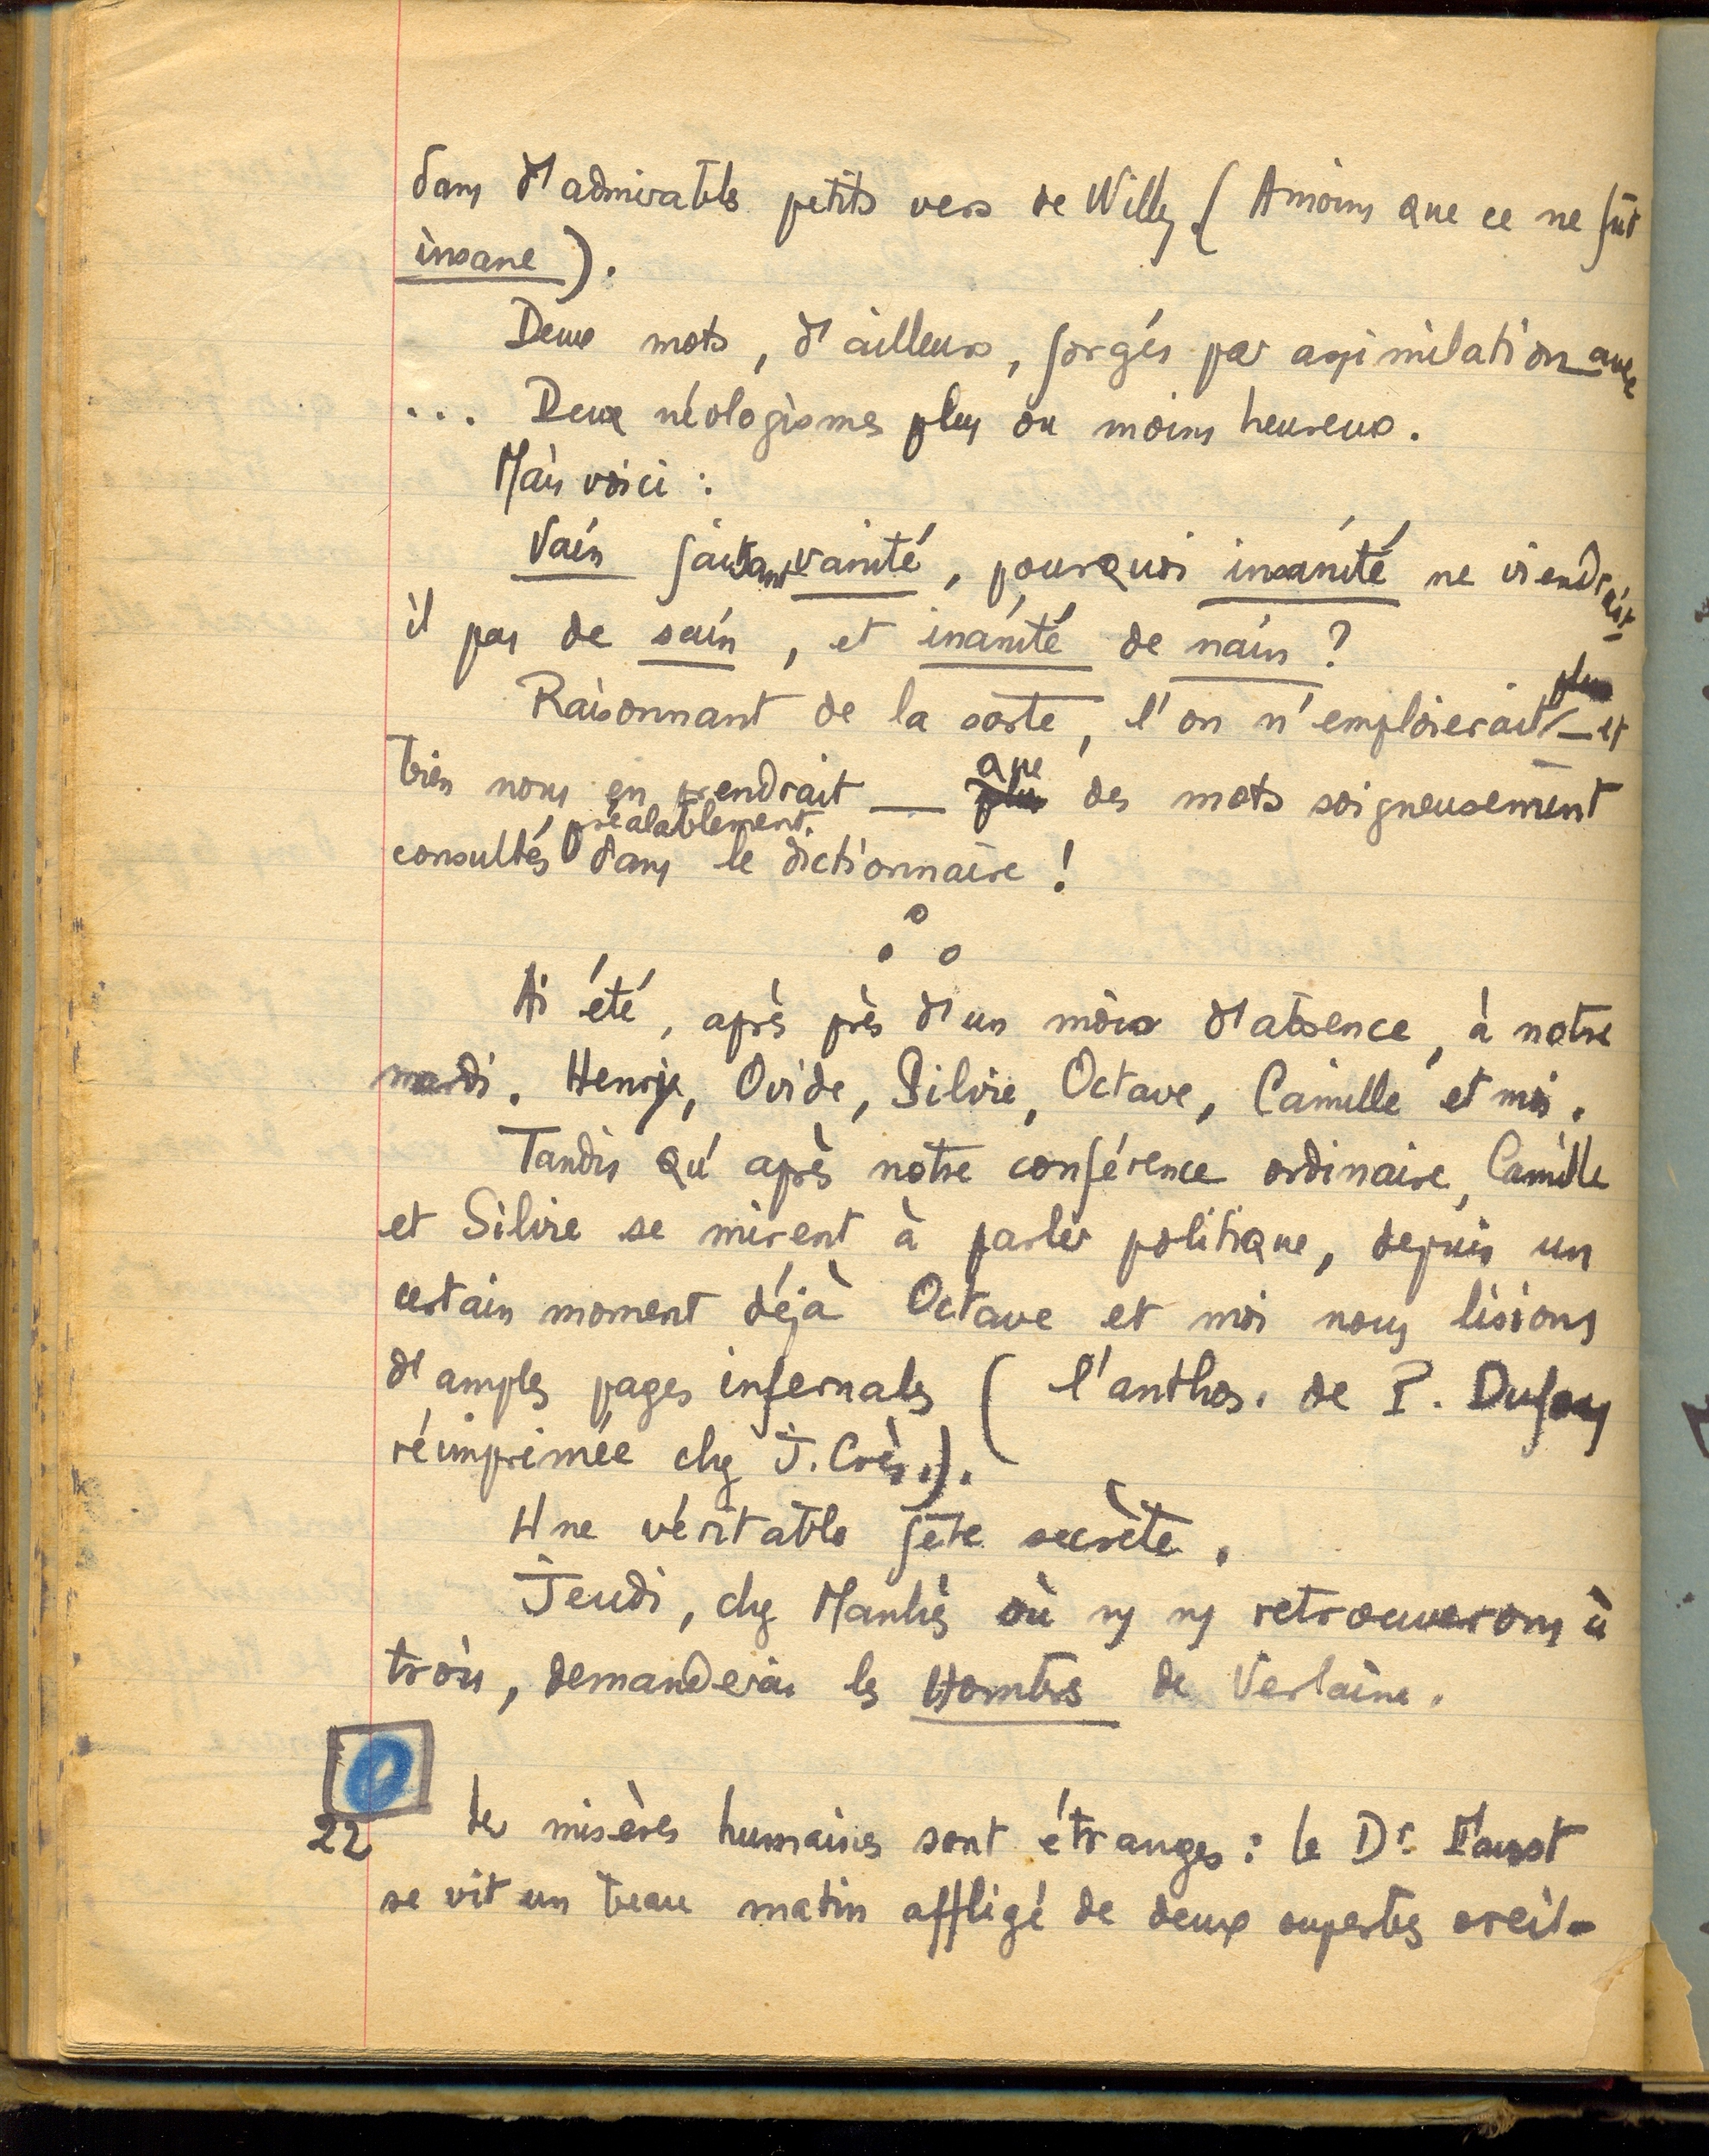 dans d'admirables petits vers de Willy (A moins que ce ne fût
insane).
Deux mots, d'ailleurs, forgés par assimilation avec
... Deux néologismes plus ou moins heureux.
Mais voici :
Vain faisant vanité, pourquoi insanité ne viendrait-
il pas de sain, et inanité de nain ?
Raisonnant de la sorte, l'on n'emploierait plus — et
bien nous en prendrait — que des mots soigneusement
consultés préalablement dans le dictionnaire !
Ai été, après près d'un mois d'absence, à notre
mardi. Henry, Ovide, Silvie, Octave, Camille et moi.
Tandis qu'après notre conférence ordinaire, Camille
et Silvie se mirent à parler politique, depuis un
certain moment déjà Octave et moi nous lisions
d'amples pages infernales (l'antho. de P. Dufay
réimprimée chez J. Crès.).
Une véritable fête secrète.
Jeudi, chez où ns ns retrouverons à
trois, demanderai les Hombres de Verlaine.
22
Les misères humaines sont étranges : le Dr. Faust
se vit un beau matin affligé de deux superbes oreil-